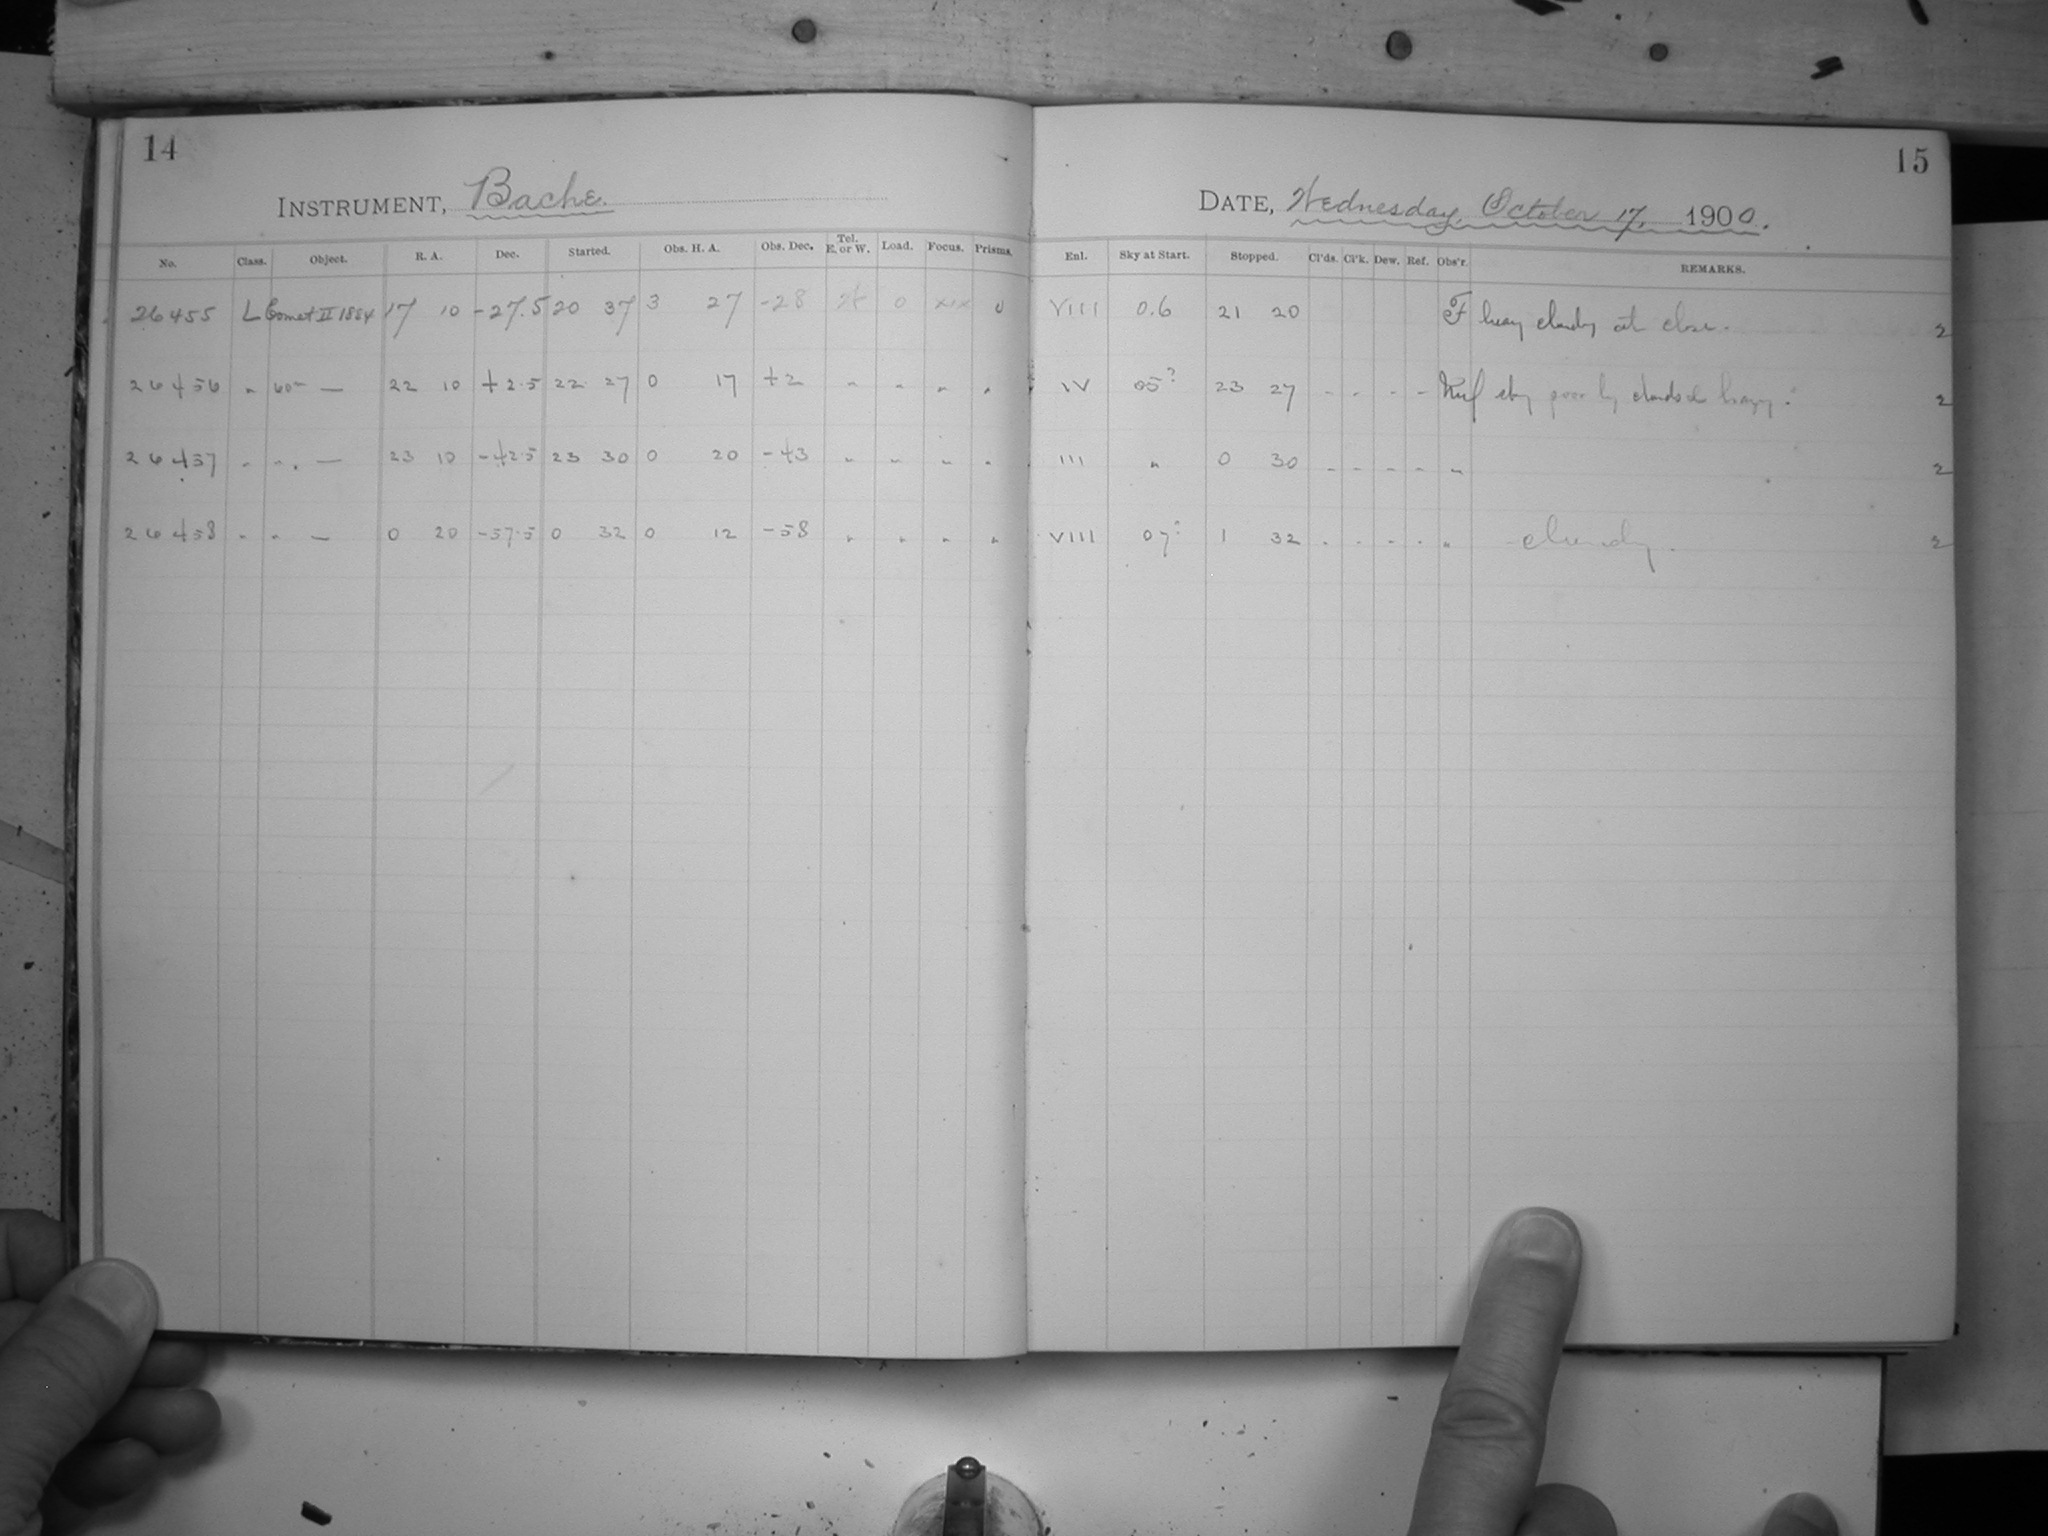 14
INSTRUMENT, Bache.
No. Class. Object. R. A. Dec. Started. Obs. H. A. Obs. Dec. Tel. E. or W. Load. Focus. Prisms.
26455 L Comet II 1884 17 10 -27.5 20 37 3 27 -28 0 xix 0
26456 " 60m — 22 10 +2.5 22 27 0 17 +2 " " " "
26457 " " — 23 10 -42.5 23 30 0 20 -43 " " " "
26458 " " — 0 20 -57.5 0 32 0 12 -58 " " " "
15
DATE, Wednesday, October 17, 1900.
Enl. Sky at Start. Stopped. Cl'ds. Cl'k. Dew. Ref. Obs'r. REMARKS.
VIII 0.6 21 20 F cloudy at close. 2
IV 05? 23 27 - - - - sky poor by clouds & hazy. 2
III " 0 30 - - - - " 2
VIII 07? 1 32 - - - - " cloudy. 2